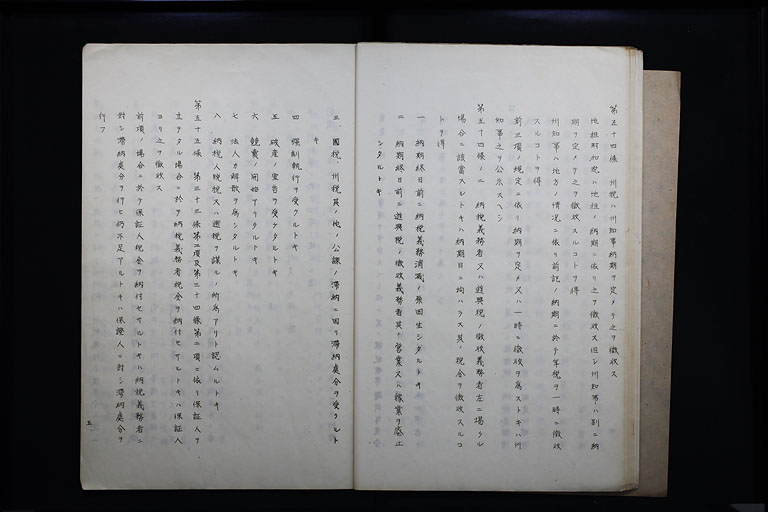 第五十四條　州稅ハ州知事納期ヲ定メテ之ヲ徵收ス
地租附加稅ハ地租ノ納期ニ依リ之ヲ徵收ス但シ州知事ハ別ニ納
期ヲ定メテ之ヲ徵收スルコトヲ得
州知事ハ地方ノ情況ニ依リ前記ノ納期ニ於テ年稅ヲ一時ニ徵收
スルコトヲ得
前三項ノ規定ニ依リ納期ヲ定メ又ハ一時ニ徵收ヲ爲ストキハ州
知事之ヲ公示スヘシ
第五十四條ノ二　納稅義務者又ハ遊興稅ノ徵收義務者左ニ揭クル
場合ニ該當スルトキハ納期日ニ拘ハラス其ノ稅金ヲ徵收スルコ
トヲ得
一　納期終日前ニ納稅義務消滅ノ原因生シタルトキ
二　納期終日前ニ遊興稅ノ徵收義務者其ノ營業又ハ稼業ヲ廢止
シタルトキ
三　國稅、州稅其ノ他ノ公課ノ滯納ニ因リ滯納處分ヲ受クルト
キ
四　强制執行ヲ受クルトキ
五　破產ノ宣吿ヲ受ケタルトキ
六　競賣ノ開始アリタルトキ
七　法人カ解散ヲ爲シタルトキ
八　納稅人脫稅又ハ逋稅ヲ謀ルノ所爲アリト認ムルトキ
第五十五條　第三十三條第二項及第三十四條第二項ニ依リ保證人ヲ
立テタル場合ニ於テ納稅義務者稅金ヲ納付セサルトキハ保證人
ヨリ之ヲ徵收ス
前項ノ場合ニ於テ保證人稅金ヲ納付セサルトキハ納稅義務者ニ
對シ滯納處分ヲ行ヒ仍不足アルトキハ保證人ニ對シ滯納處分ヲ
行フ
五